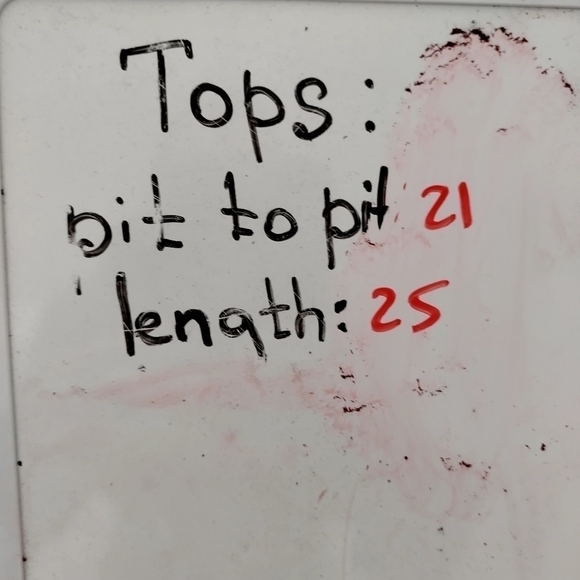 Tops:
pit to pit: 21
length: 25